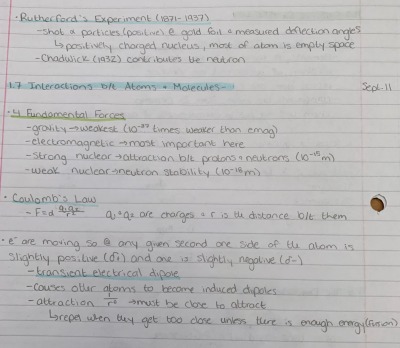 · Rutherford's Experiment (1871-1937)
- shot α particles (positive) @ gold foil + measured deflection angles
↳ positively charged nucleus, most of atom is empty space
- Chadwick (1932) contributes the neutron
1.7 Interactions b/t Atoms + Molecules - Sept. 11
· 4 Fundamental Forces
- gravity → weakest (10⁻³⁹ times weaker than emag)
- electromagnetic → most important here
- strong nuclear → attraction b/t protons + neutrons (10⁻¹⁵m)
- weak nuclear → neutron stability (10⁻¹⁸m)
· Coulomb's Law
- F=α q₁q₂/r² q₁+q₂ are charges + r is the distance b/t them
· e⁻ are moving so @ any given second one side of the atom is
slightly positive (δ+) and one is slightly negative (δ-)
- transient electrical dipole
- causes other atoms to become induced dipoles
- attraction 1/r⁶ → must be close to attract
↳ repel when they get too close unless there is enough energy (fusion)